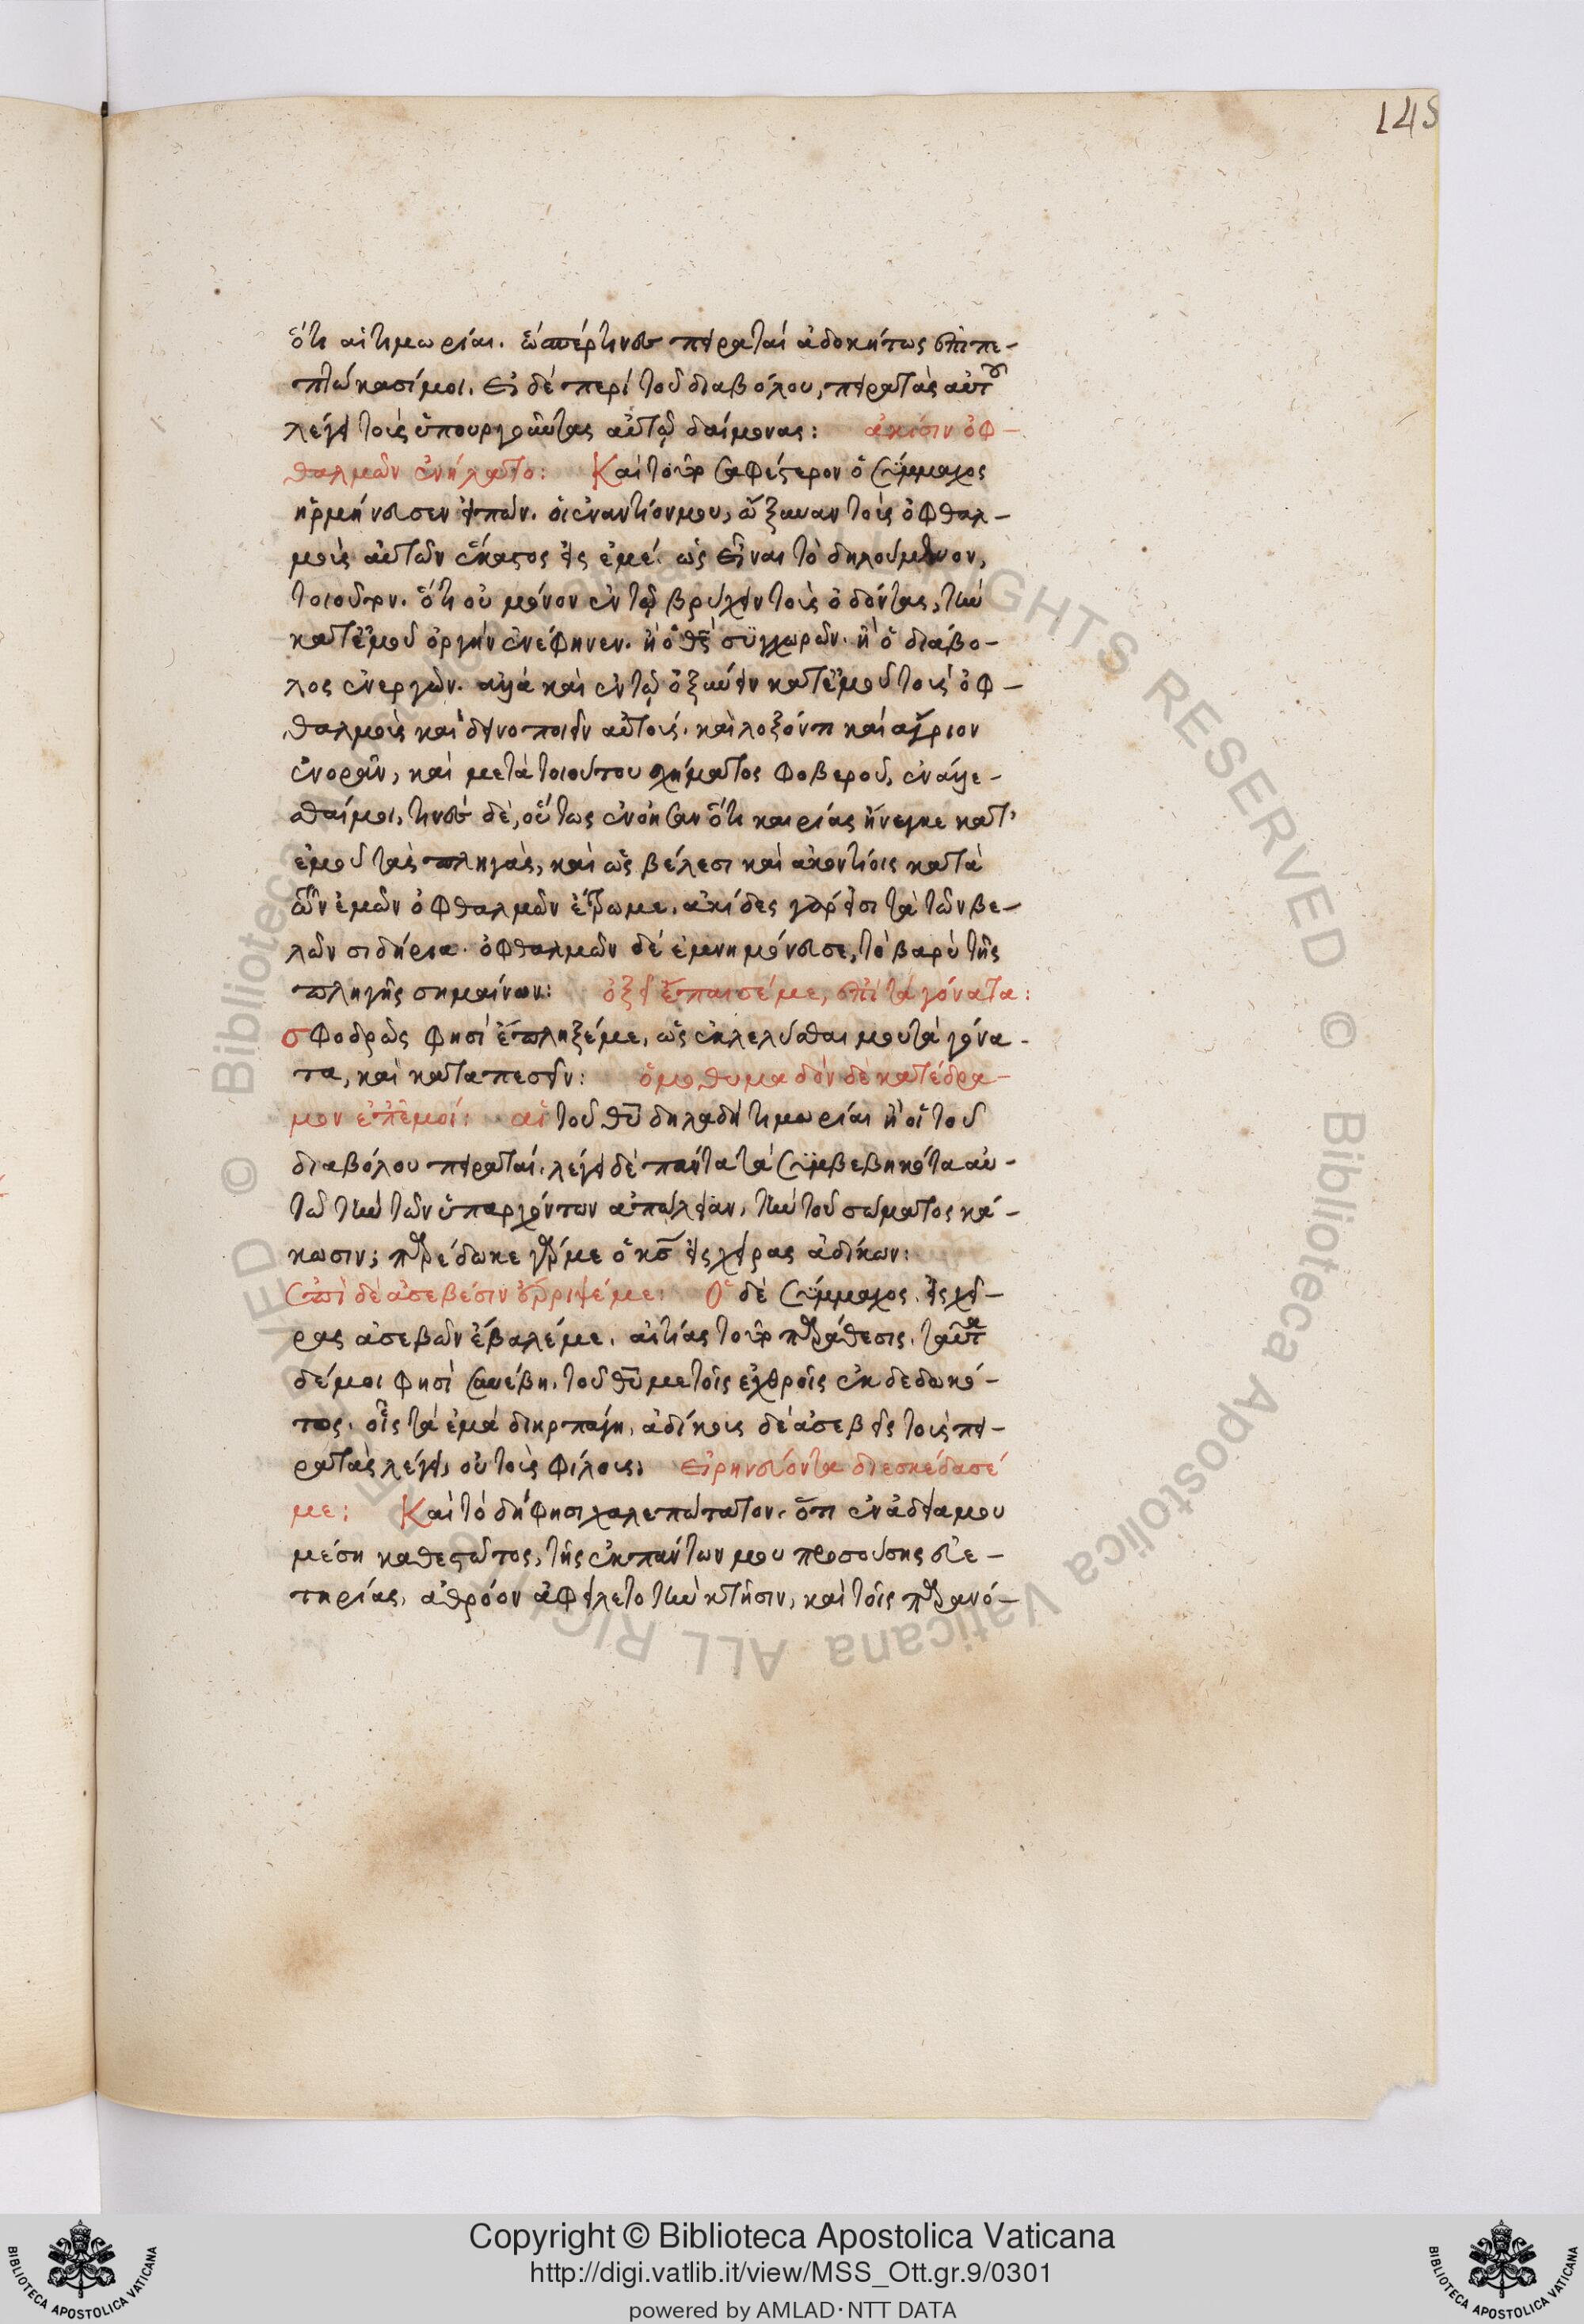 145
ὅτι αἱ τιμωρίαι. ὥσπέρ τινες πειραταί ἀδοκήτως ἐπιπε-
πτώκασί μοι. εἰ δέ περί τοῦ διαβόλου, πειρατὰς αὐτοῦ
λέγει τοὺς ὑπουργοῦντας αὐτῷ δαίμονας: ἀκίσιν ὀφ-
θαλμῶν ἐνήλατο: Καὶ τοῦτο σαφέστερον ὁ Σύμμαχος
ἡρμήνευσεν εἰπών. οἱ ἐναντίον μου, ὤξυναν τοῖς ὀφθαλ-
μοῖς αὐτῶν ἕκαστος εἰς ἐμέ. ὡς εἶναι τὸ δηλούμενον,
τοιοῦτον. ὅτι οὐ μόνον ἐν τῷ βρύχειν τοὺς ὀδόντας, τὴν
κατ' ἐμοῦ ὀργὴν ἐνέφηνεν. ἢ ὁ θς συγχωρῶν. ἢ ὁ διάβο-
λος ἐνεργῶν. ἀλλά καὶ ἐν τῷ ὀξύνειν κατ' ἐμοῦ τοὺς ὀφ-
θαλμοὺς καὶ δεινοποιεῖν αὐτούς. καὶ λοξόν τι καί ἄγριον
ἐνορᾶν, καὶ μετὰ τοιούτου σχήματος φοβεροῦ, ἐνάλλε-
σθαί μοι, τινὲς δὲ, οὕτως ἐνόησαν ὅτι καιρίας ἤνεγκε κατ'
ἐμοῦ τὰς πληγὰς, καὶ ὡς βέλεσι καὶ ἀκοντίοις κατὰ
τῶν ἐμῶν ὀφθαλμῶν ἔτρωσε. ἀκίδες γάρ εἰσι τὰ τῶν βε-
λῶν σιδήρια. ὀφθαλμῶν δὲ ἐμνημόνευσε, τὸ βαρὺ τῆς
πληγῆς σημαίνων: ὀξεῖ ἔπαισέ με, ἐπὶ τὰ γόνατα:
σφοδρῶς φησὶ ἔπληξέ με, ὡς ἐκλελύσθαι μου τὰ γόνα-
τα, καὶ καταπεσεῖν: ὁμοθυμαδὸν δὲ κατέδρα-
μον ἐπ' ἐμοί: αἱ τοῦ θυ δηλαδὴ τιμωρίαι ἢ οἱ τοῦ
διαβόλου πειραταί. λέγει δὲ πάντα τὰ συμβεβηκότα αὐ-
τῷ τὴν τῶν ὑπαρχόντων ἀπώλειαν, τὴν τοῦ σώματος κά-
κωσιν; παρέδωκε γάρ με ὁ κς εἰς χεῖρας ἀδίκων:
ἐπὶ δὲ ἀσεβέσιν ἔρριψέ με: Ὁ δὲ Σύμμαχος. εἰς χεῖ-
ρας ἀσεβῶν ἔβαλέ με. αἰτίας τοῦτο παράθεσις. ταῦτα
δέ μοι φησὶ συνέβη. τοῦ θυ με τοῖς ἐχθροῖς ἐκδεδωκό-
τος. οἷς τὰ ἐμὰ διηρπάγη. ἀδίκους δὲ ἀσεβεῖς τοὺς πει-
ρατὰς λέγει, οὐ τοὺς φίλους: εἰρηνεύοντα διεσκέδασέ
με: Καὶ τὸ δή φησι χαλεπώτατον. ὅτι ἐν ἀδείᾳ μου
μέσῃ καθεστῶτος, τῆς ἐκ πάντων μου προσούσης εὐε-
τηρίας, ἀθρόον ἀφείλετο τὴν κτῆσιν, καὶ τοῖς παρανό-
Copyright © Biblioteca Apostolica Vaticana
http://digi.vatlib.it/view/MSS_Ott.gr.9/0301
powered by AMLAD·NTT DATA